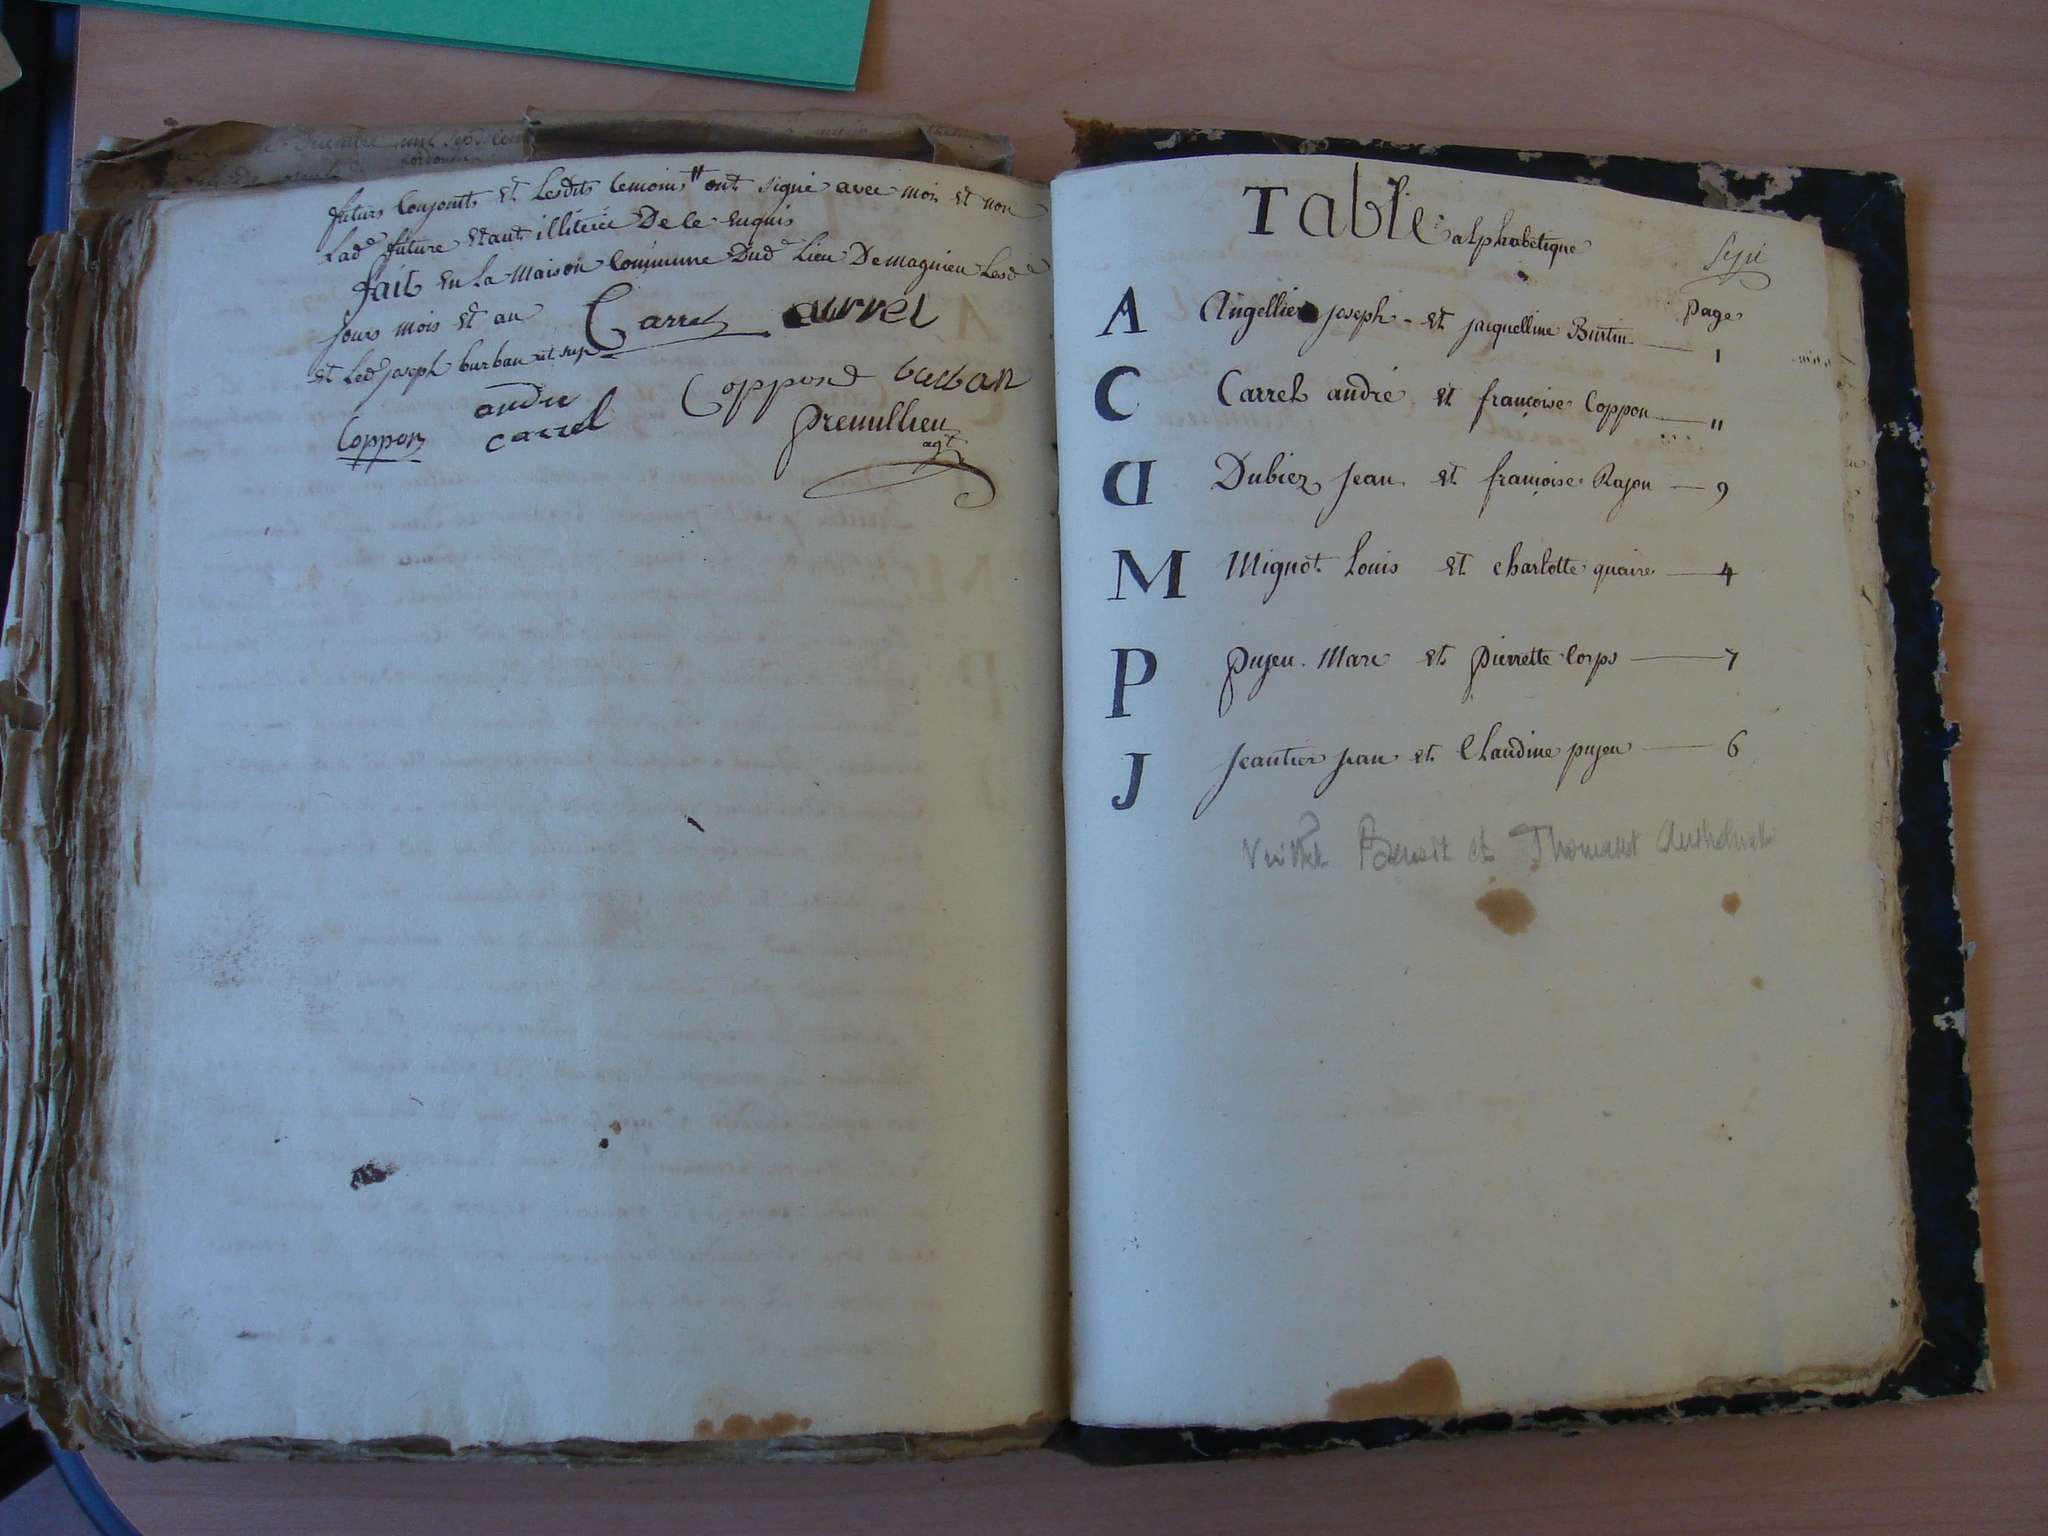 futurs Conjoints et Lesdits temoins ont signé avec moi et non
Lade future Etant illiterée De ce Enquis
fait En la Maison Commune Dud Lieu De magnieu Lesd
Jours mois et an Carrel carrel
et Led joseph burban
Coppon andre carrel Coppond burban
premillieu
agt
Table alphabetique
Page
A Angellier joseph et jacquelline Burtin 1
C Carrel andré et francoise Coppon 11
D Dubiez Jean et francoise Rajon 9
M Mignot Louis et charlotte quaire 4
P pujeu Marc et pierrette Corps 7
J Jeantier Jean et Claudine pujeu 6
Benoit et Thomasset